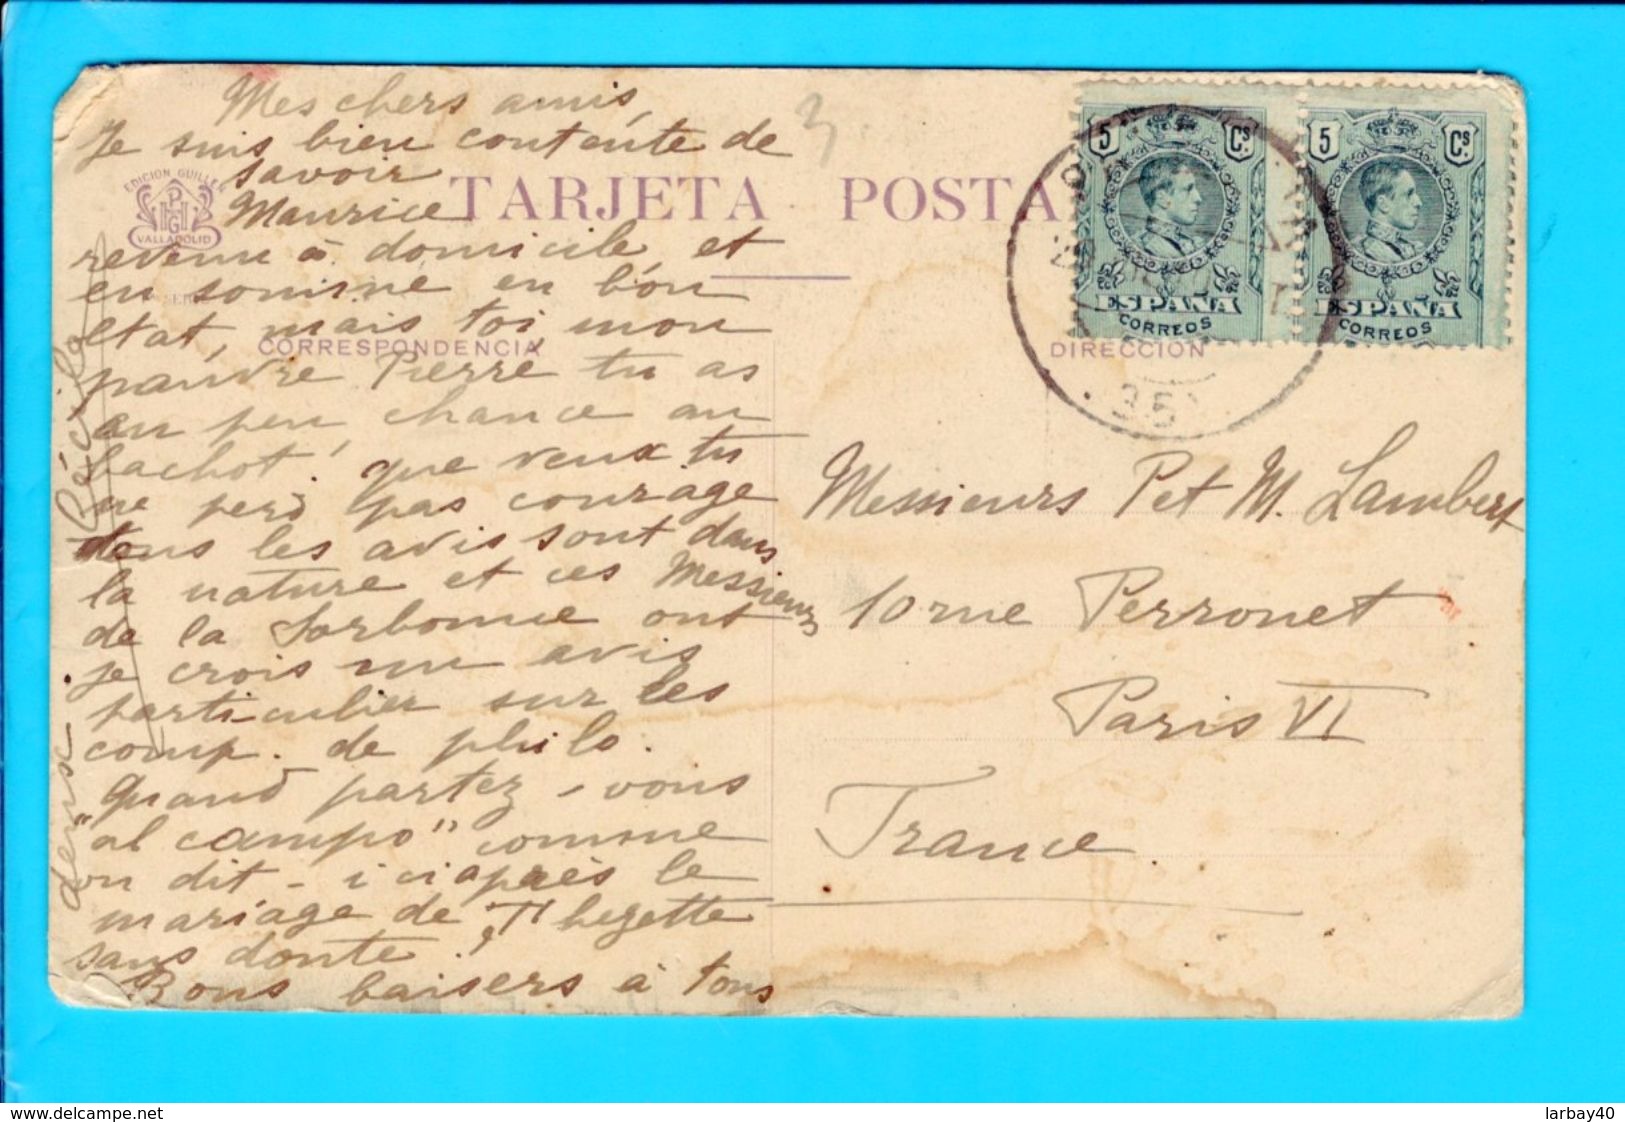 Mes chers amis,
Je suis bien contente de
savoir
Maurice
revenu à domicile, et
en somme en bon
etat, mais toi mon
pauvre Pierre tu as
eu peu chance au
bachot! que veux tu
ne perd pas courage
tous les avis sont dans
la nature et ces Messieurs
de la Sorbonne ont
je crois un avis
particulier sur les
comp. de philo.
Quand partez-vous
"al campo" comme
on dit - ici après le
mariage de
sans doute.
Bons baisers à tous
EDICION GUILLEN
VALLADOLID
TARJETA POSTA
CORRESPONDENCIA
DIRECCIÓN
5 Cs.
ESPAÑA
CORREOS
5 Cs.
ESPAÑA
CORREOS
35
3
Messieurs P et M. Lambert
10 rue Perronet
Paris VI
France.
larbay40
www.delcampe.net